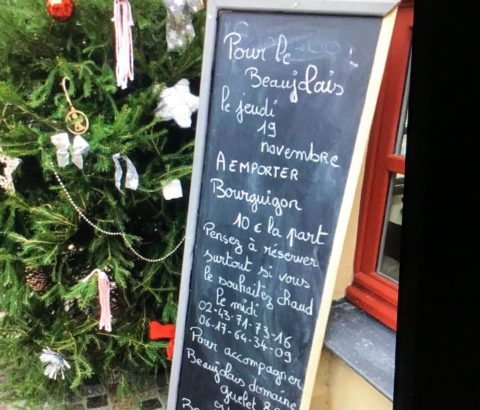 Pour le
Beaujolais
le jeudi
19
novembre
A EMPORTER
Bourguigon
10 € la part
Pensez à réserver
surtout si vous
le souhaitez chaud
le midi
02-43-71-73-16
06-17-64-34-09
Pour accompagner
Beaujolais domaine